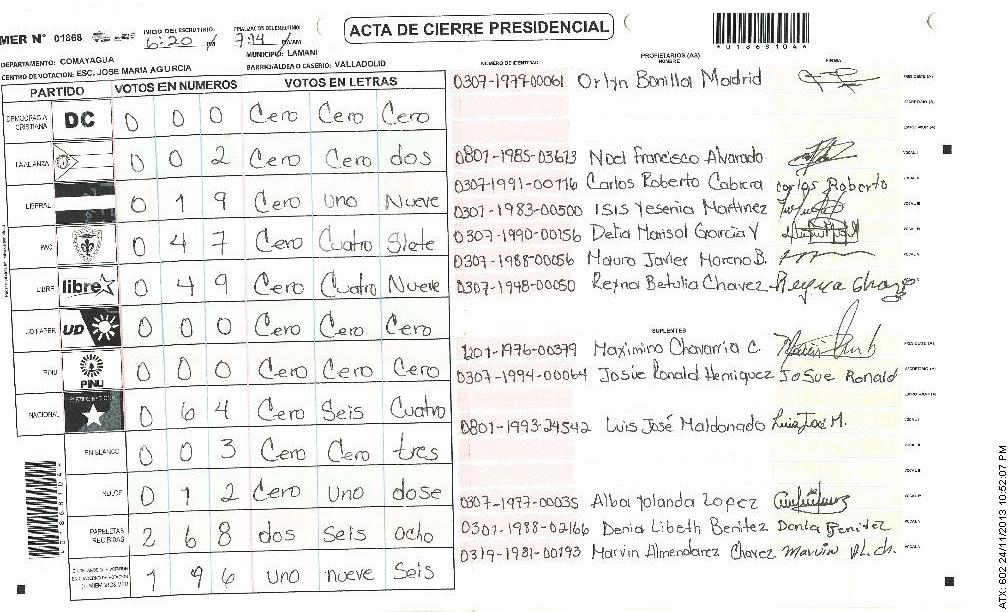 ACTA DE CIERRE PRESIDENCIAL
MER N° 01868
INICIO DEL ESCRUTINIO: 6:20 PM
FINALIZACION DEL ESCRUTINIO: 7:14 PM/AM
*01868104*
DEPARTAMENTO: COMAYAGUA
MUNICIPIO: LAMANI
CENTRO DE VOTACION: ESC. JOSE MARIA AGURCIA
BARRIO/ALDEA O CASERIO: VALLADOLID
PARTIDO VOTOS EN NUMEROS VOTOS EN LETRAS
DEMOCRACIA CRISTIANA DC 0 0 0 Cero Cero Cero
LA ALIANZA 0 0 2 Cero Cero dos
LIBERAL 0 1 9 Cero uno Nueve
PAC 0 4 7 Cero Cuatro Siete
LIBRE libre 0 4 9 Cero Cuatro Nueve
UD FAPER UD 0 0 0 Cero Cero Cero
PINU PINU 0 0 0 Cero Cero Cero
NACIONAL PARTIDO NACIONAL 0 6 4 Cero Seis Cuatro
EN BLANCO 0 0 3 Cero Cero tres
NULOS 0 1 2 Cero uno dose
PAPELETAS RECIBIDAS 2 6 8 dos Seis ocho
1 9 6 uno nueve Seis
NUMERO DE IDENTIDAD PROPIETARIOS (AS) NOMBRE FIRMA
0307-1979-00061 Orlyn Bonilla Madrid PRESIDENTE (A)
SECRETARIO (A)
ESCRUTADOR (A)
0801-1985-03673 Noel Francisco Alvarado VOCAL I
0307-1991-00776 Carlos Roberto Cabrera Carlos Roberto VOCAL II
0307-1983-00500 ISIS Yesenia Martinez VOCAL III
0307-1990-00156 Delia Marisol Garcia Y VOCAL IV
0307-1988-00056 Mauro Javier Moreno B. VOCAL V
0307-1948-00050 Reyna Betulia Chavez Reyna Chavez
SUPLENTES
1201-1976-00379 Maximino Chavarria C. PRESIDENTE (A)
0307-1994-00064 Josue Ronald Henriquez JoSue Ronald SECRETARIO (A)
ESCRUTADOR (A)
0801-1993-24542 Luis José Maldonado Luis José M. VOCAL I
VOCAL II
VOCAL III
0307-1977-00035 Alba Yolanda Lopez VOCAL IV
0301-1988-02166 Denia Libeth Benitez Denia Benitez VOCAL V
0319-1981-00193 Marvin Almendarez Chavez Marvin Al. ch.
*01868104*
ATX: 602 24/11/2013 10:52:07 PM